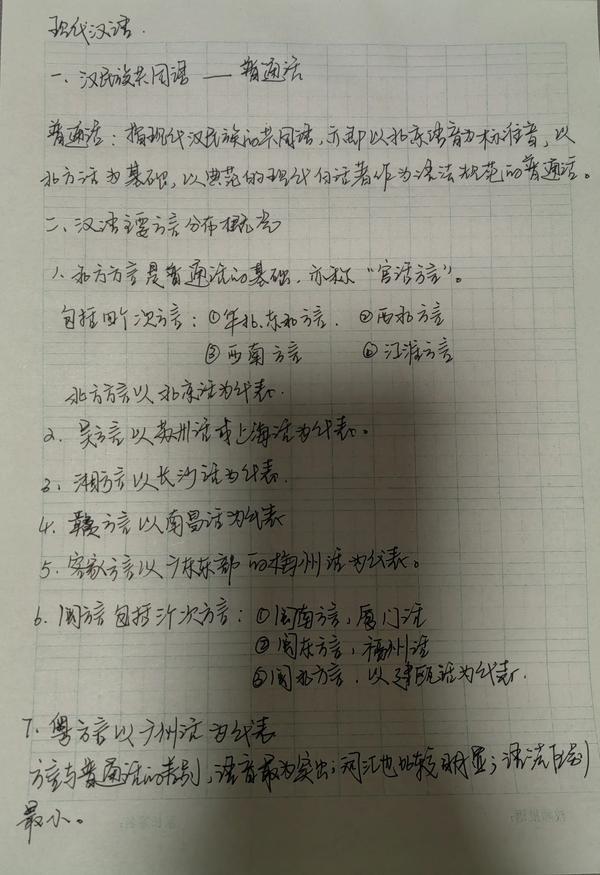 现代汉语.
一、汉民族共同语 —— 普通话
普通话：指现代汉民族的共同语，亦即以北京语音为标准音，以
北方话为基础，以典范的现代白话著作为语法规范的普通话。
二、汉语主要方言分布概况
1、北方方言是普通话的基础.亦称“官话方言”。
包括四个次方言：①华北、东北方言. ②西北方言
③西南方言 ④江淮方言
北方方言以北京话为代表.
2、吴方言以苏州话或上海话为代表。
3、湘方言以长沙话为代表.
4、赣方言以南昌话为代表
5、客家方言以广东东部的梅州话为代表。
6、闽方言包括三个次方言：①闽南方言，厦门话
②闽东方言，福州话
③闽北方言.以建瓯话为代表.
7、粤方言以广州话为代表
方言与普通话的差别，语音最为突出；词汇也比较明显；语法区别
最小。